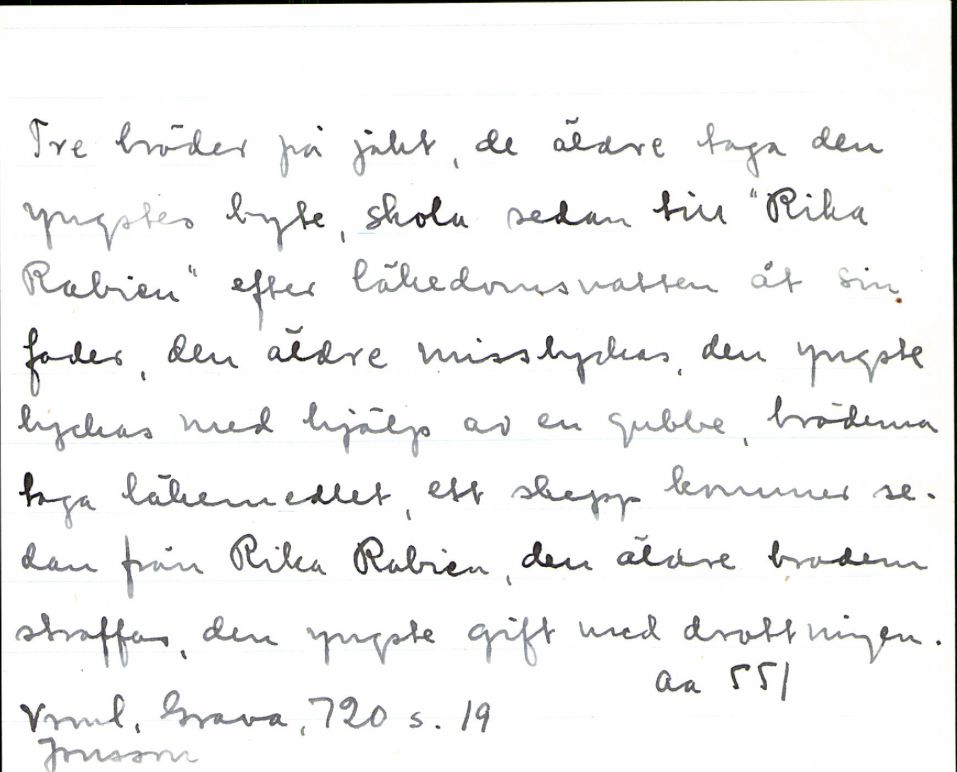 Tre bröder på jakt, de äldre taga den
yngstes byte, skola sedan till "Rika
Rabien" efter läkedomsvatten åt sin
fader, den äldre misslyckas, den yngste
lyckas med hjälp av en gubbe, bröderna
taga läkemedlet, ett skepp kommer se-
dan från Rika Rabien, den äldre brodern
straffas, den yngste gift med drottningen.
Aa 551
Vrml, Grava, 720 s. 19
Jonsson